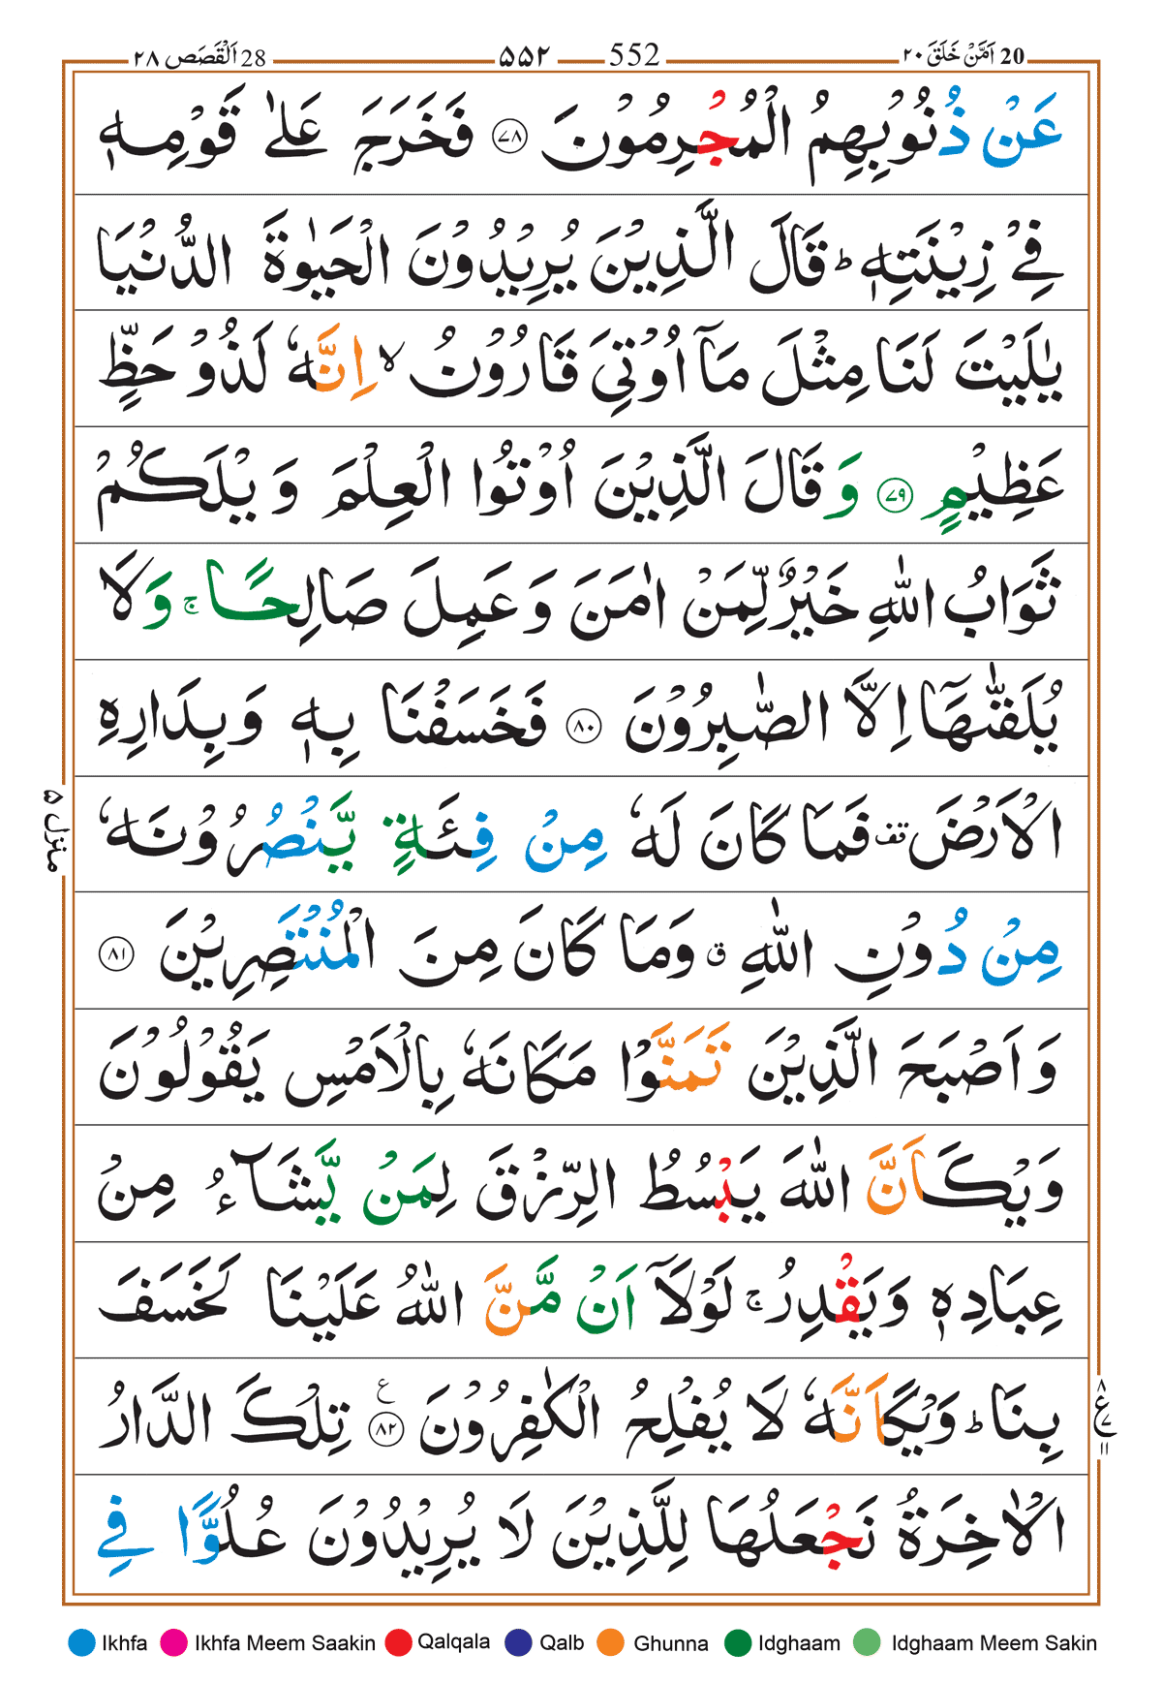 20 اَمَّنْ خَلَقَ ٢٠ 552 ۵۵۲ 28 اَلْقَصَص ٢٨
عَنْ ذُنُوْبِهِمُ الْمُجْرِمُوْنَ ﴿٧٨﴾ فَخَرَجَ عَلٰى قَوْمِهٖ
فِىْ زِيْنَتِهٖ ؕ قَالَ الَّذِيْنَ يُرِيْدُوْنَ الْحَيٰوةَ الدُّنْيَا
يٰلَيْتَ لَنَا مِثْلَ مَاۤ اُوْتِىَ قَارُوْنُ ۙ اِنَّهٗ لَذُوْ حَظٍّ
عَظِيْمٍ ﴿٧٩﴾ وَ قَالَ الَّذِيْنَ اُوْتُوا الْعِلْمَ وَيْلَكُمْ
ثَوَابُ اللّٰهِ خَيْرٌ لِّمَنْ اٰمَنَ وَعَمِلَ صَالِحًا ۚ وَلَا
يُلَقّٰٮهَاۤ اِلَّا الصّٰبِرُوْنَ ﴿٨٠﴾ فَخَسَفْنَا بِهٖ وَبِدَارِهِ
الْاَرْضَ قف فَمَا كَانَ لَهٗ مِنْ فِئَةٍ يَّنْصُرُوْنَهٗ
مِنْ دُوْنِ اللّٰهِ ق وَمَا كَانَ مِنَ الْمُنْتَصِرِيْنَ ﴿٨١﴾
وَاَصْبَحَ الَّذِيْنَ تَمَنَّوْا مَكَانَهٗ بِالْاَمْسِ يَقُوْلُوْنَ
وَيْكَاَنَّ اللّٰهَ يَبْسُطُ الرِّزْقَ لِمَنْ يَّشَآءُ مِنْ
عِبَادِهٖ وَيَقْدِرُ ۚ لَوْلَاۤ اَنْ مَّنَّ اللّٰهُ عَلَيْنَا لَخَسَفَ
بِنَا ؕ وَيْكَاَنَّهٗ لَا يُفْلِحُ الْكٰفِرُوْنَ ﴿٨٢﴾ ع تِلْكَ الدَّارُ
الْاٰخِرَةُ نَجْعَلُهَا لِلَّذِيْنَ لَا يُرِيْدُوْنَ عُلُوًّا فِى
منزل ۵
٨ ع ٧ ١١
Ikhfa Ikhfa Meem Saakin Qalqala Qalb Ghunna Idghaam Idghaam Meem Sakin